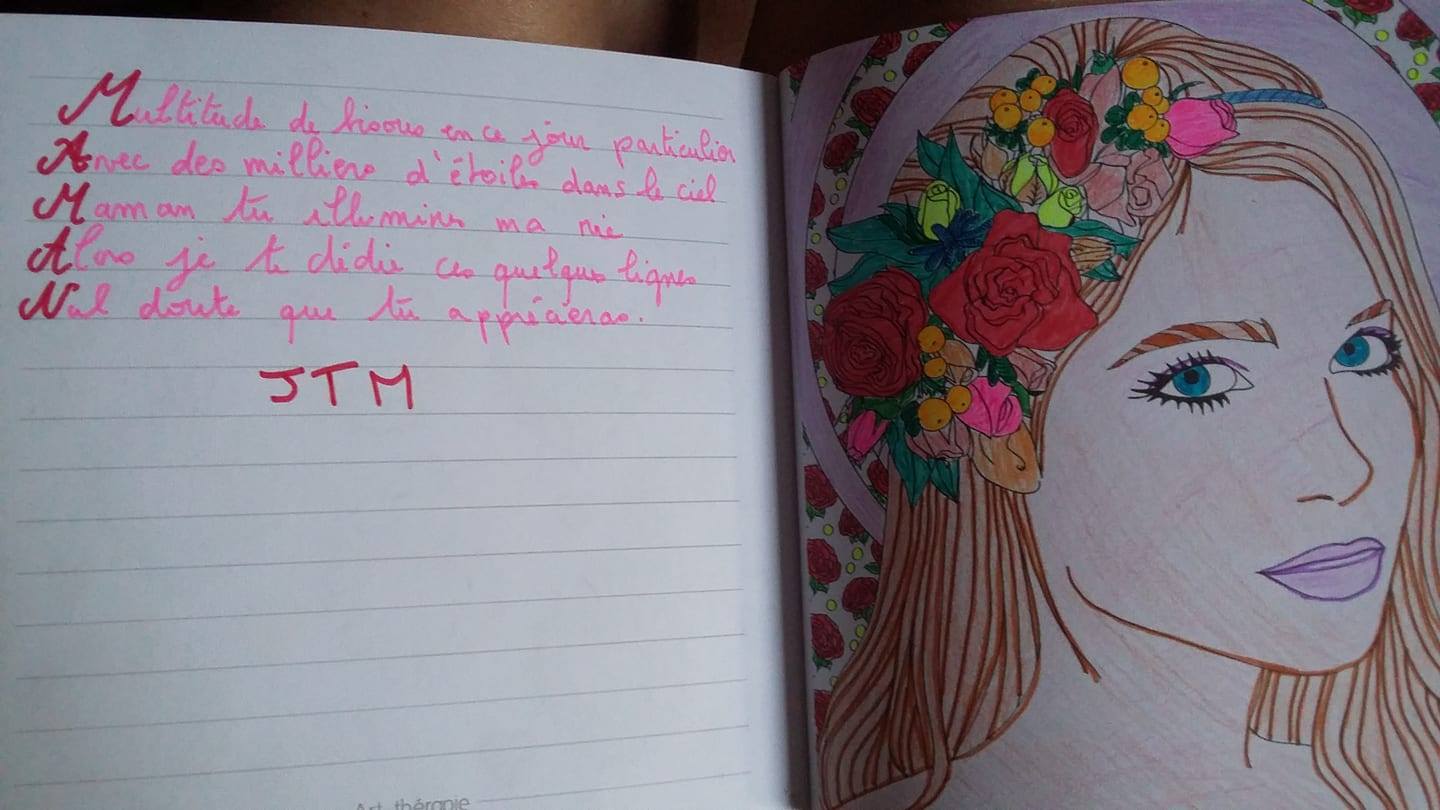 Multitude de bisous en ce jour particulier
Avec des milliers d'étoiles dans le ciel
Maman tu illumines ma vie
Alors je te dédie ces quelques lignes
Nul doute que tu apprécieras.
JTM
Art thérapie